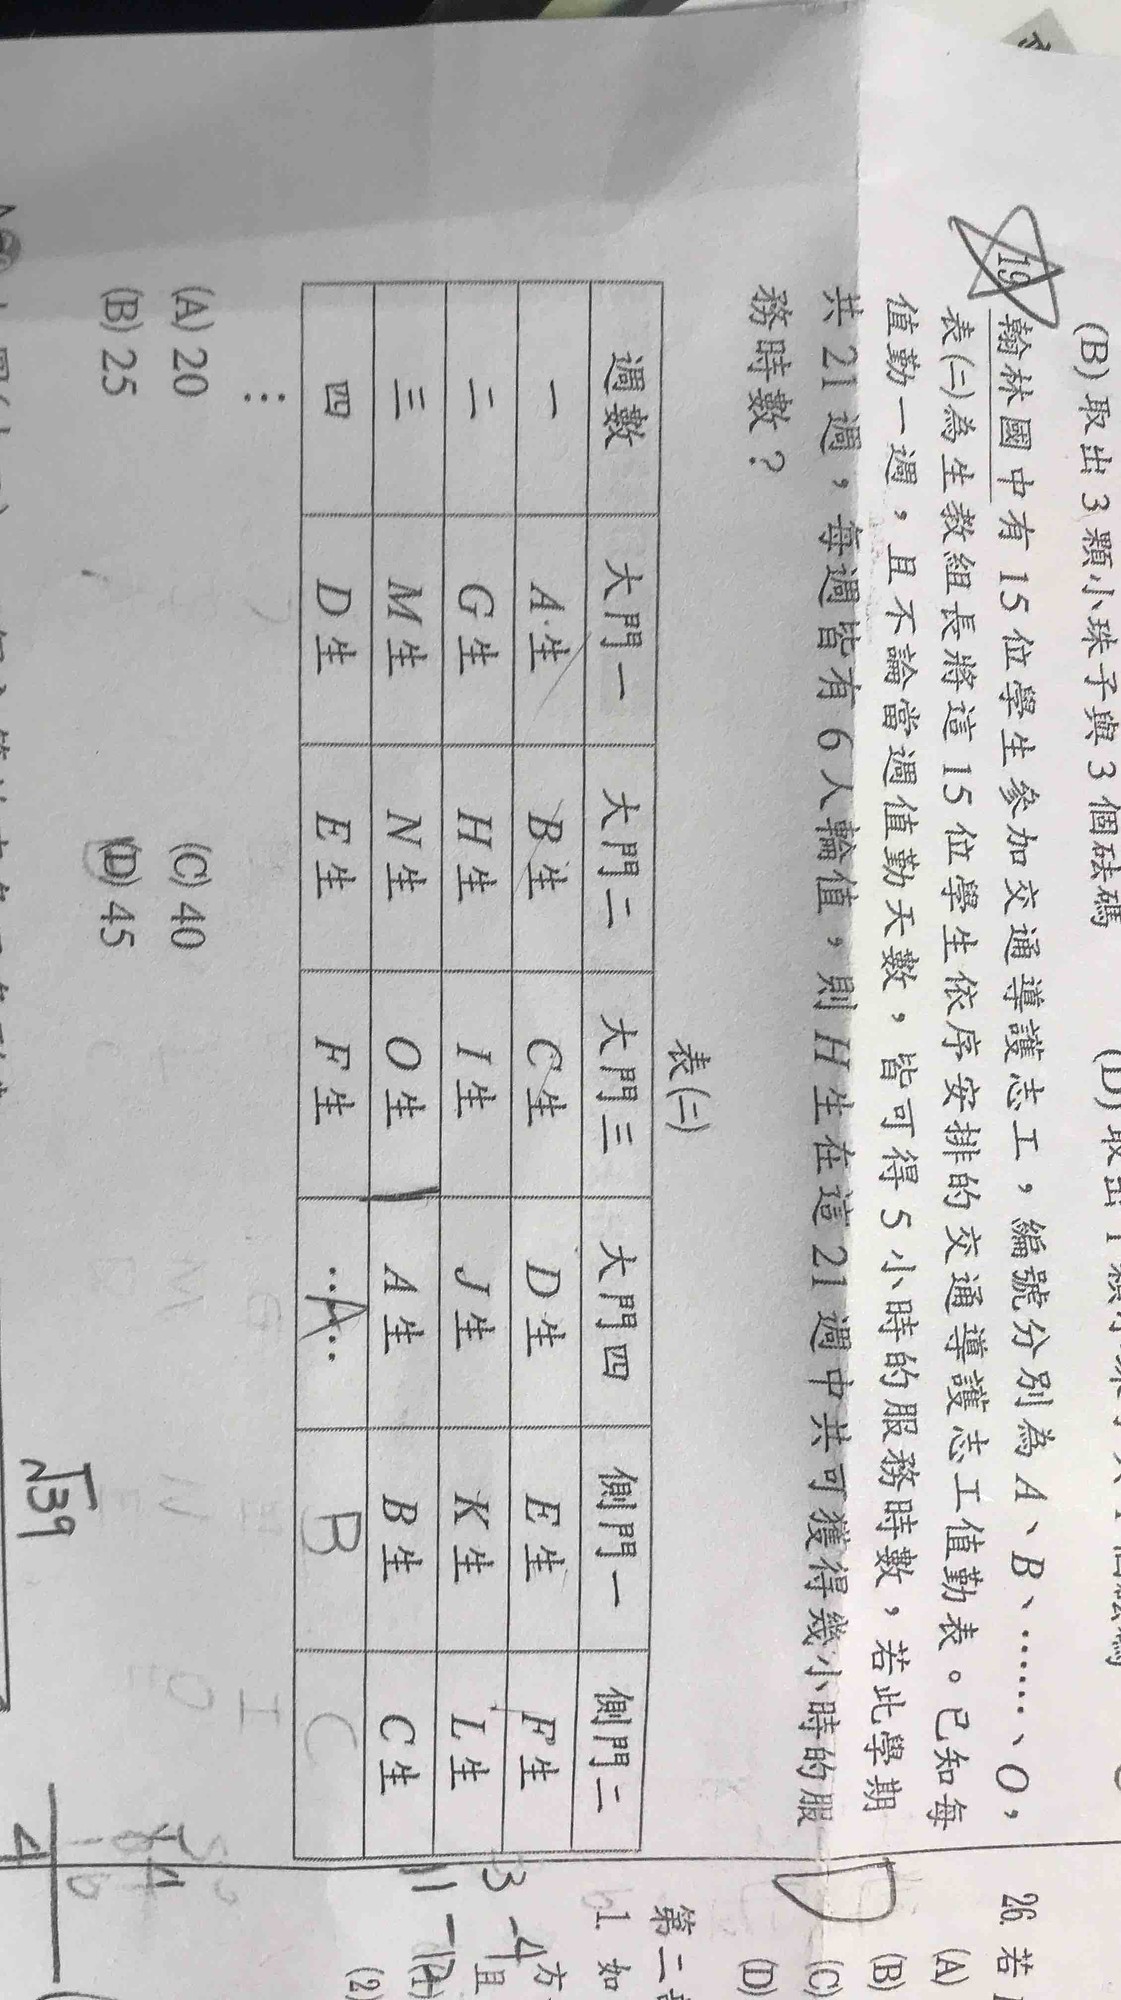 (B) 取出 3 顆小珠子與 3 個砝碼
19. 翰林國中有 15 位學生參加交通導護志工，編號分別為 A、B、……、O，
表(二)為生教組長將這 15 位學生依序安排的交通導護志工值勤表。已知每
值勤一週，且不論當週值勤天數，皆可得 5 小時的服務時數，若此學期
共 21 週，每週皆有 6 人輪值，則 H 生在這 21 週中共可獲得幾小時的服
務時數？
表(二)
週數 大門一 大門二 大門三 大門四 側門一 側門二
一 A 生 B 生 C 生 D 生 E 生 F 生
二 G 生 H 生 I 生 J 生 K 生 L 生
三 M 生 N 生 O 生 A 生 B 生 C 生
四 D 生 E 生 F 生 …… A B C
⋮
(A) 20 (C) 40
(B) 25 (D) 45
√39
26. 若
(A)
(B)
(C)
(D)
第二
1. 如
(2)